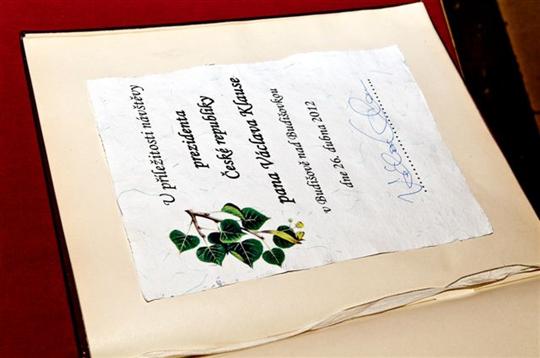 U příležitosti návštěvy
prezidenta
České republiky
pana Václava Klause
v Budišově nad Budišovkou
dne 26. dubna 2012